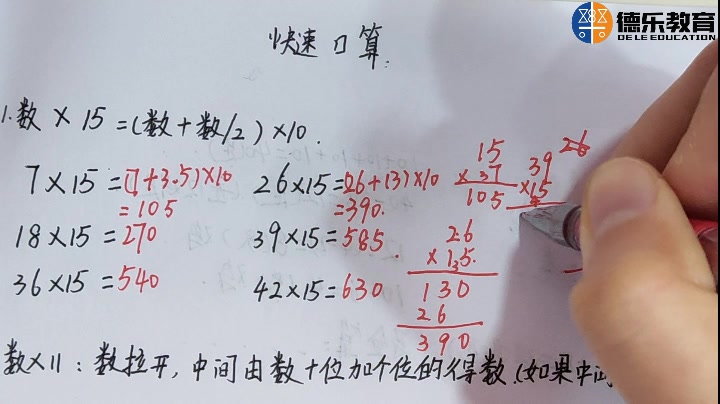 德乐教育
DE LE EDUCATION
快速口算:
1.数×15=(数+数/2)×10.
7×15=(7+3.5)×10
=105
26×15=(26+13)×10
=390.
18×15=270
39×15=585.
36×15=540
42×15=630
15
×37
105
39
×15
26
26
×15.
130
26
390
数×11:数拉开,中间由数十位加个位的得数.(如果中间